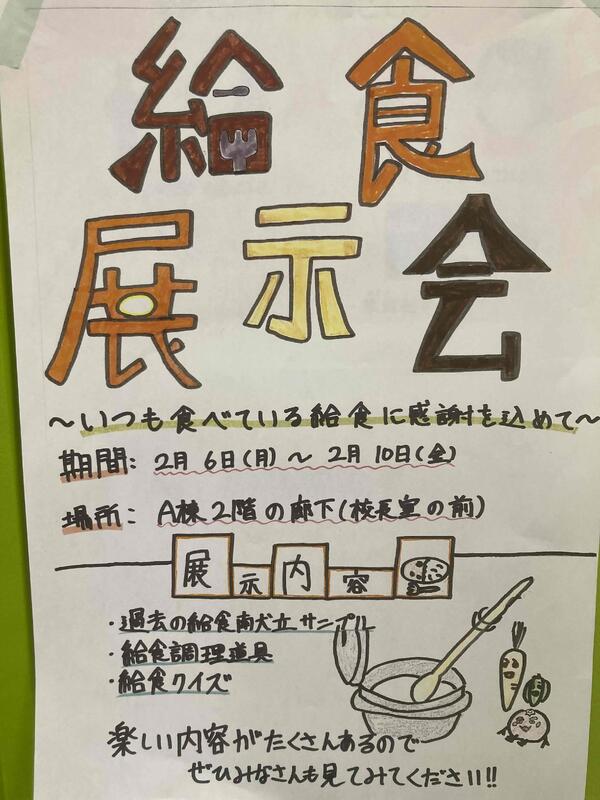 給食
展示会
〜いつも食べている給食に感謝を込めて〜
期間: 2月 6日(月) 〜 2月 10日(金)
場所: A棟2階の廊下(校長室の前)
展示内容
・過去の給食献立サンプル
・給食調理道具
・給食クイズ
楽しい内容がたくさんあるので
ぜひみなさんも見てみてください!!